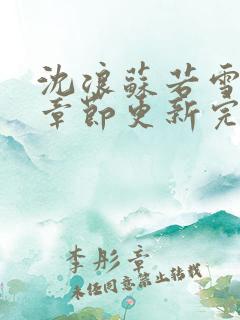 沈浪蘇若雪
章節更新完
李彤章
未经同意禁止转载